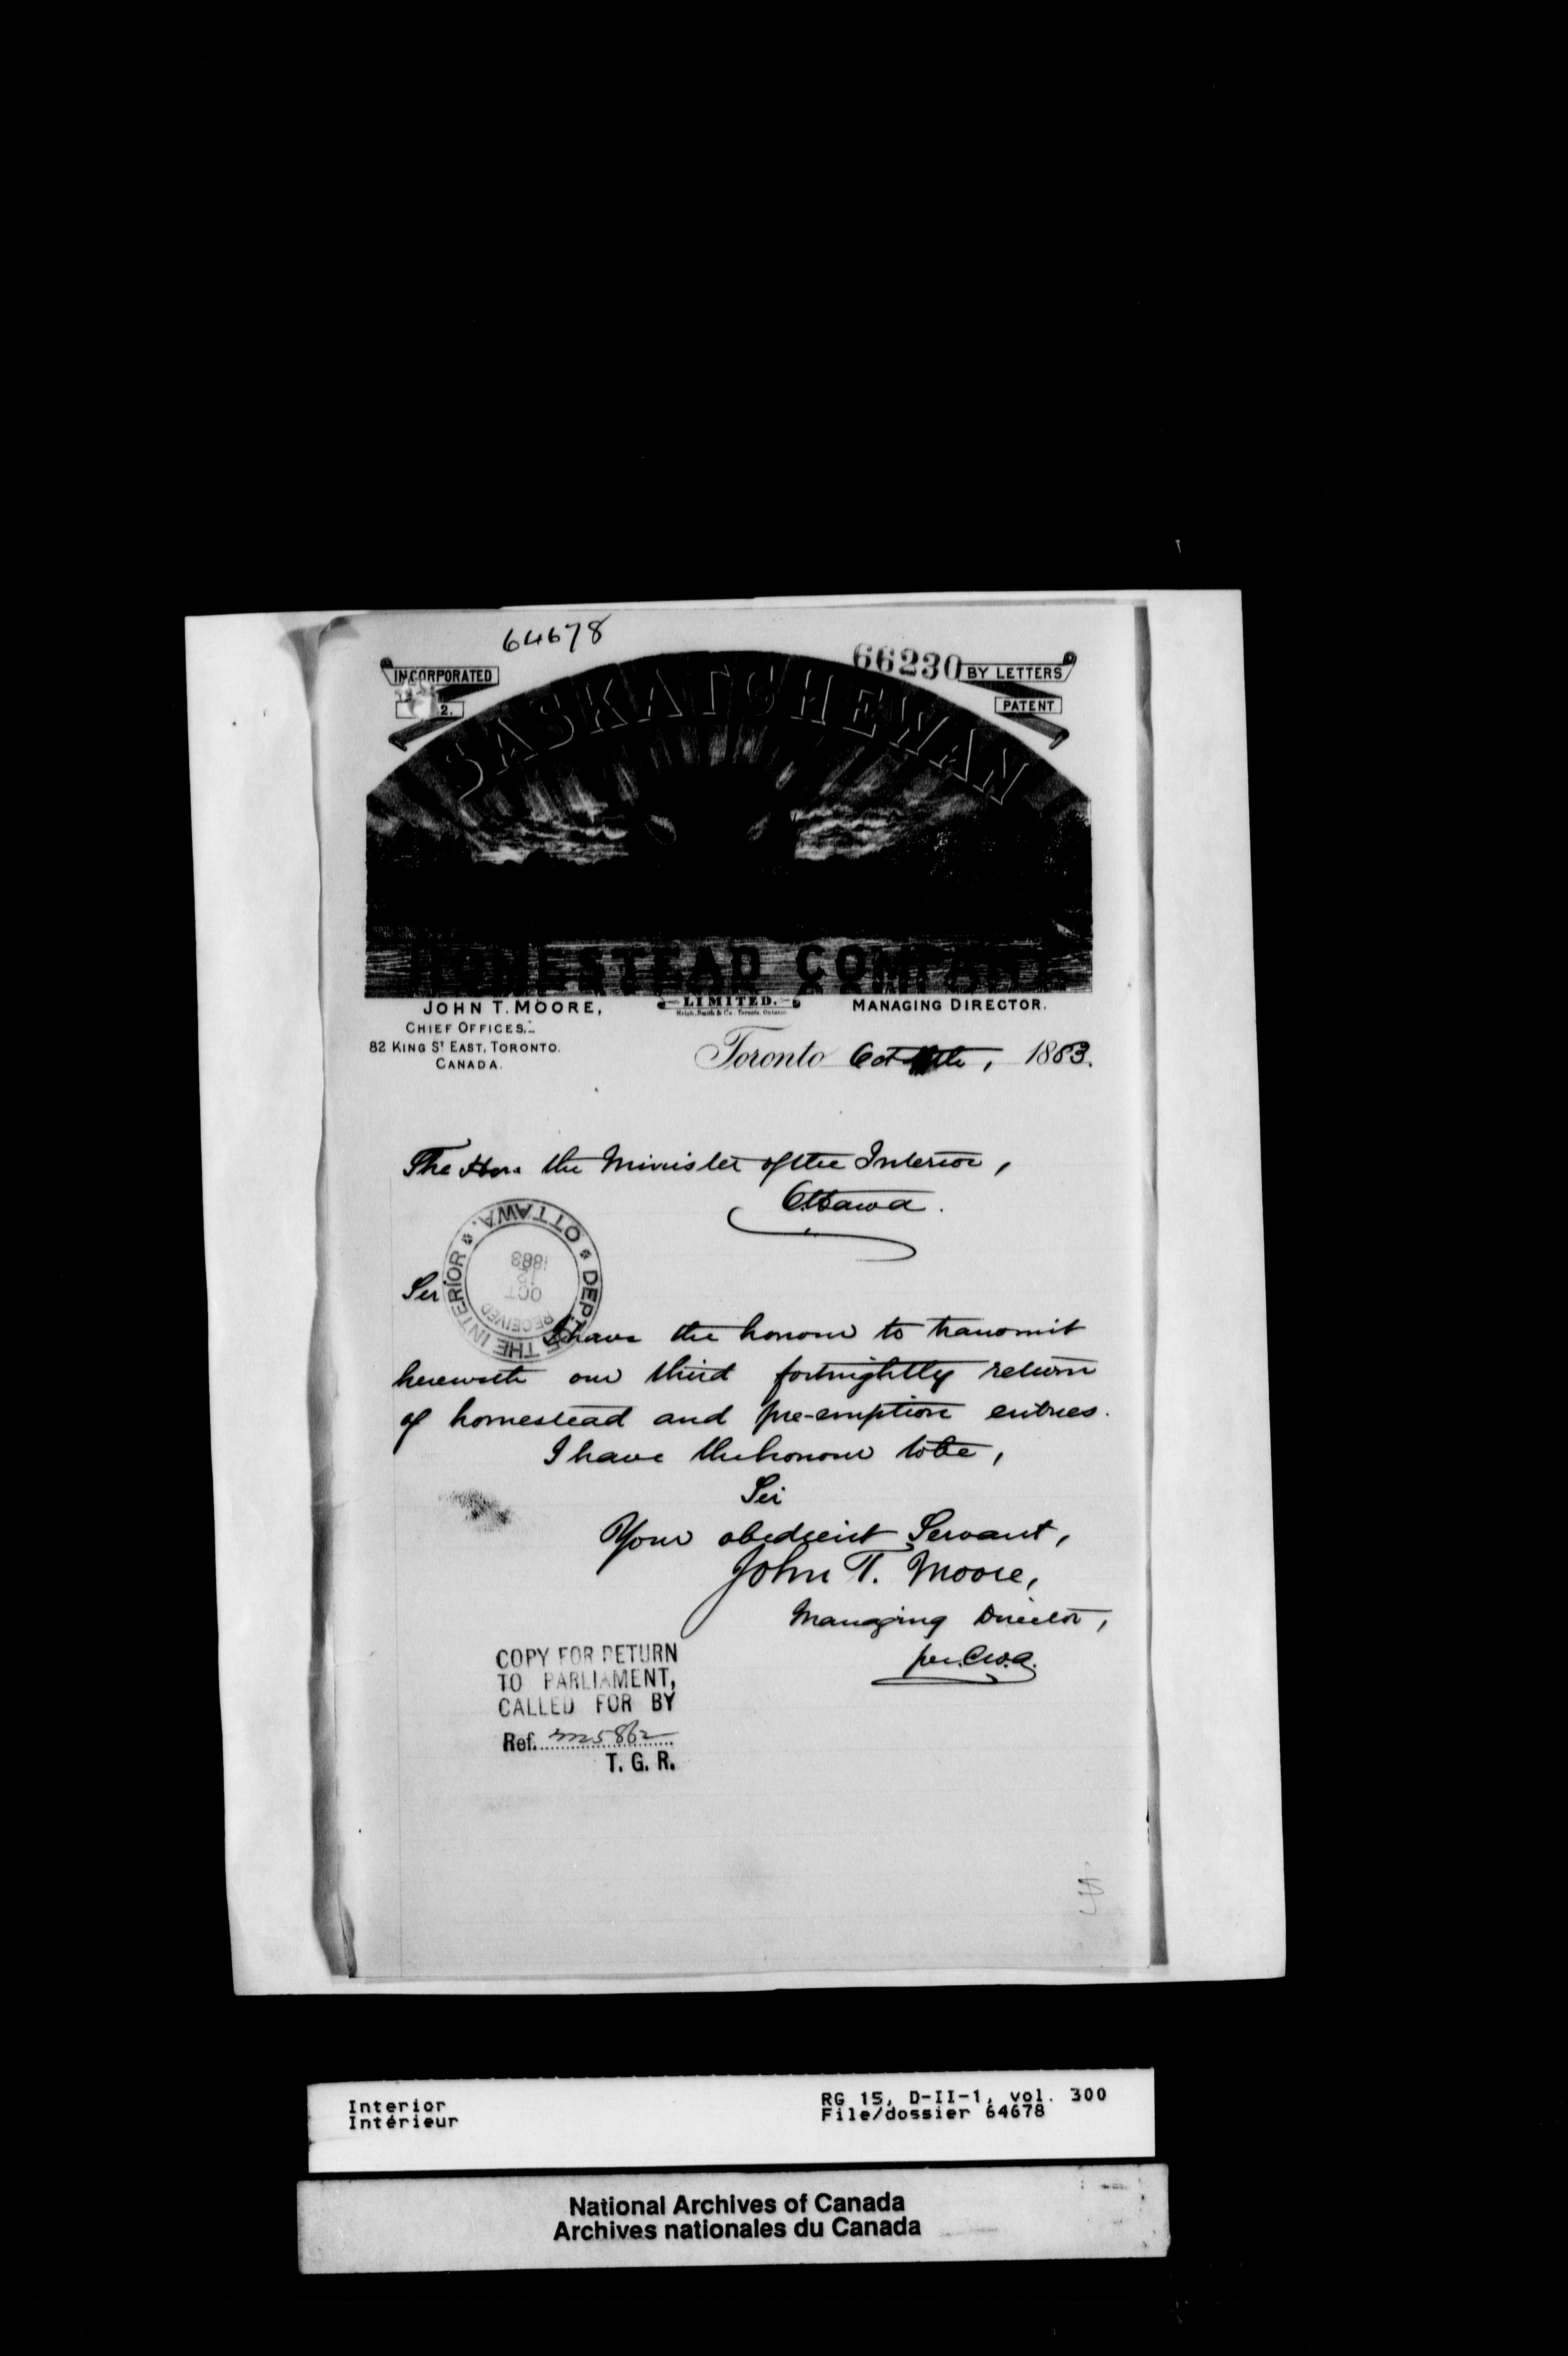 64678
66230
INCORPORATED
BY LETTERS
2.
PATENT
SASKATCHEWAN
HOMESTEAD COMPANY
LIMITED.
Rolph, Smith & Co. Toronto, Ontario
JOHN T. MOORE,
MANAGING DIRECTOR.
CHIEF OFFICES,
82 KING ST EAST, TORONTO.
CANADA.
Toronto Oct , 1883.
The Hon. the Minister of the Interior,
Ottawa.
DEPT OF THE INTERIOR * OTTAWA. *
RECEIVED
OCT
12
1883
Sir
I have the honour to transmit
herewith our third fortnightly return
of homestead and pre-emption entries.
I have the honour to be,
Sir
Your obedient Servant,
John T. Moore,
Managing Director,
per. C.W.A.
COPY FOR RETURN
TO PARLIAMENT,
CALLED FOR BY
Ref. 225862
T. G. R.
Interior
Intérieur
RG 15, D-II-1, vol. 300
File/dossier 64678
National Archives of Canada
Archives nationales du Canada